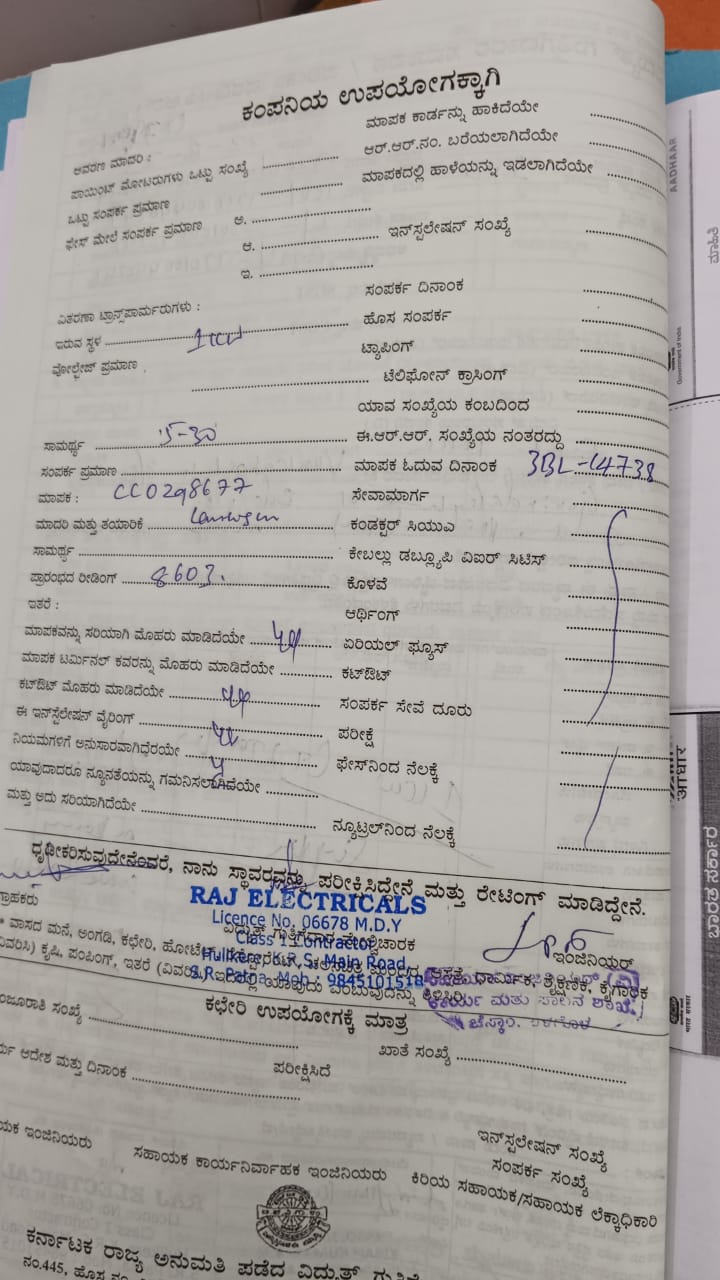 ಕಂಪನಿಯ ಉಪಯೋಗಕ್ಕಾಗಿ
ಮಾಪಕ ಕಾರ್ಡನ್ನು ಹಾಕಿದೆಯೇ
ಆವರಣ ಮಾದರಿ :
ಆರ್.ಆರ್.ನಂ. ಬರೆಯಲಾಗಿದೆಯೇ
ಪಾಯಿಂಟ್ ಮೋಟರುಗಳು ಒಟ್ಟು ಸಂಖ್ಯೆ
ಮಾಪಕದಲ್ಲಿ ಹಾಳೆಯನ್ನು ಇಡಲಾಗಿದೆಯೇ
ಒಟ್ಟು ಸಂಪರ್ಕ ಪ್ರಮಾಣ
ಫೇಸ್ ಮೇಲೆ ಸಂಪರ್ಕ ಪ್ರಮಾಣ
ಅ.
ಆ.
ಇನ್‌ಸ್ಪಲೇಷನ್ ಸಂಖ್ಯೆ
ಇ.
ಸಂಪರ್ಕ ದಿನಾಂಕ
ವಿತರಣಾ ಟ್ರಾನ್ಸ್‌ಪಾರ್ಮರುಗಳು :
ಹೊಸ ಸಂಪರ್ಕ
ಇರುವ ಸ್ಥಳ
ಟ್ಯಾಪಿಂಗ್
ವೋಲ್ಟೇಜ್ ಪ್ರಮಾಣ
ಟೆಲಿಫೋನ್ ಕ್ರಾಸಿಂಗ್
ಯಾವ ಸಂಖ್ಯೆಯ ಕಂಬದಿಂದ
ಸಾಮರ್ಥ್ಯ 5-30 ಈ.ಆರ್.ಆರ್. ಸಂಖ್ಯೆಯ ನಂತರದ್ದು
ಸಂಪರ್ಕ ಪ್ರಮಾಣ ಮಾಪಕ ಓದುವ ದಿನಾಂಕ 3BL-14738
ಮಾಪಕ : CC0298677 ಸೇವಾಮಾರ್ಗ
ಮಾದರಿ ಮತ್ತು ತಯಾರಿಕೆ ಕಂಡಕ್ಟರ್ ಸಿಯುಎ
ಸಾಮರ್ಥ್ಯ ಕೇಬಲ್ಲು ಡಬ್ಲ್ಯೂಪಿ ವಿಐರ್ ಸಿಟಿಸ್
ಪ್ರಾರಂಭದ ರೀಡಿಂಗ್ 8603. ಕೊಳವೆ
ಇತರೆ : ಆರ್ಥಿಂಗ್
ಮಾಪಕವನ್ನು ಸರಿಯಾಗಿ ಮೊಹರು ಮಾಡಿದೆಯೇ ಏರಿಯಲ್ ಫ್ಯೂಸ್
ಮಾಪಕ ಟರ್ಮಿನಲ್ ಕವರನ್ನು ಮೊಹರು ಮಾಡಿದೆಯೇ ಕಟ್‌ಔಟ್
ಕಟ್‌ಔಟ್ ಮೊಹರು ಮಾಡಿದೆಯೇ ಸಂಪರ್ಕ ಸೇವೆ ದೂರು
ಈ ಇನ್‌ಸ್ಟಲೇಷನ್ ವೈರಿಂಗ್ ಪರೀಕ್ಷೆ
ನಿಯಮಗಳಿಗೆ ಅನುಸಾರವಾಗಿಧೆರಯೇ ಫೇಸ್‌ನಿಂದ ನೆಲಕ್ಕೆ
ಯಾವುದಾದರೂ ನ್ಯೂನತೆಯನ್ನು ಗಮನಿಸಲಾಗಿದೆಯೇ
ಮತ್ತು ಅದು ಸರಿಯಾಗಿದೆಯೇ ನ್ಯೂಟ್ರಲ್‌ನಿಂದ ನೆಲಕ್ಕೆ
ಧೃಡೀಕರಿಸುವುದೇನೆಂದರೆ, ನಾನು ಸ್ಥಾವರವನ್ನು ಪರೀಕ್ಷಿಸಿದ್ದೇನೆ ಮತ್ತು ರೇಟಿಂಗ್ ಮಾಡಿದ್ದೇನೆ.
RAJ ELECTRICALS
Licence No. 06678 M.D.Y
Class 1 Contractor
Hulikere, K.R.S. Main Road
S.R. Patna, Mob : 9845101518
ಗ್ರಾಹಕರು ಇಂಜಿನಿಯರ್
* ವಾಸದ ಮನೆ, ಅಂಗಡಿ, ಕಛೇರಿ, ಧಾರ್ಮಿಕ, ಶೈಕ್ಷಣಿಕ, ಕೈಗಾರಿಕೆ
ಕೃಷಿ, ಪಂಪಿಂಗ್, ಇತರೆ
ಕಾರ್ಯ ಮತು ಪಾಲನೆ ಶಾಖೆ
ಕಛೇರಿ ಉಪಯೋಗಕ್ಕೆ ಮಾತ್ರ
ಮಂಜೂರಾತಿ ಸಂಖ್ಯೆ ಖಾತೆ ಸಂಖ್ಯೆ
ಆದೇಶ ಮತ್ತು ದಿನಾಂಕ ಪರೀಕ್ಷಿಸಿದೆ
ಇನ್‌ಸ್ಪಲೇಷನ್ ಸಂಖ್ಯೆ
ಸಂಪರ್ಕ ಸಂಖ್ಯೆ
ಇಂಜಿನಿಯರು ಸಹಾಯಕ ಕಾರ್ಯನಿರ್ವಾಹಕ ಇಂಜಿನಿಯರು ಕಿರಿಯ ಸಹಾಯಕ/ಸಹಾಯಕ ಲೆಕ್ಕಾಧಿಕಾರಿ
ಕರ್ನಾಟಕ ರಾಜ್ಯ ಅನುಮತಿ ಪಡೆದ ವಿದ್ಯುತ್
ನಂ.445, ಹೊಸ
AADHAAR
ಮಾಹಿತಿ
Government of India
आधार
ಭಾರತ ಸರ್ಕಾರ